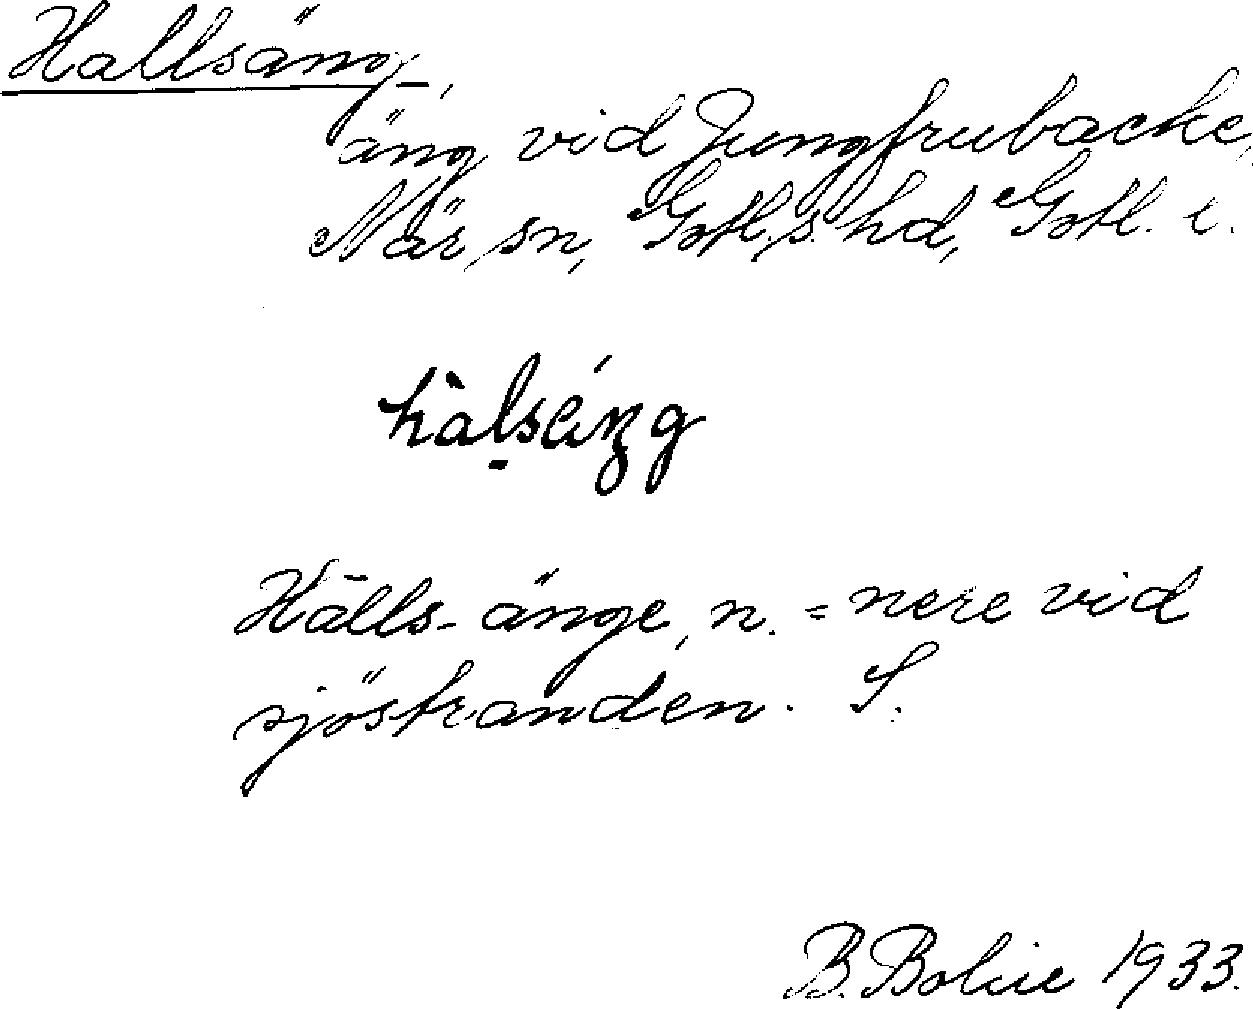 Hallsäng,
äng vid Jungfrubacke,
När sn, Gotl. s. hd, Gotl. l.
hàlsäŋg
Hälls-änge, n. = nere vid
sjöstranden. S.
B. Bolin 1933.